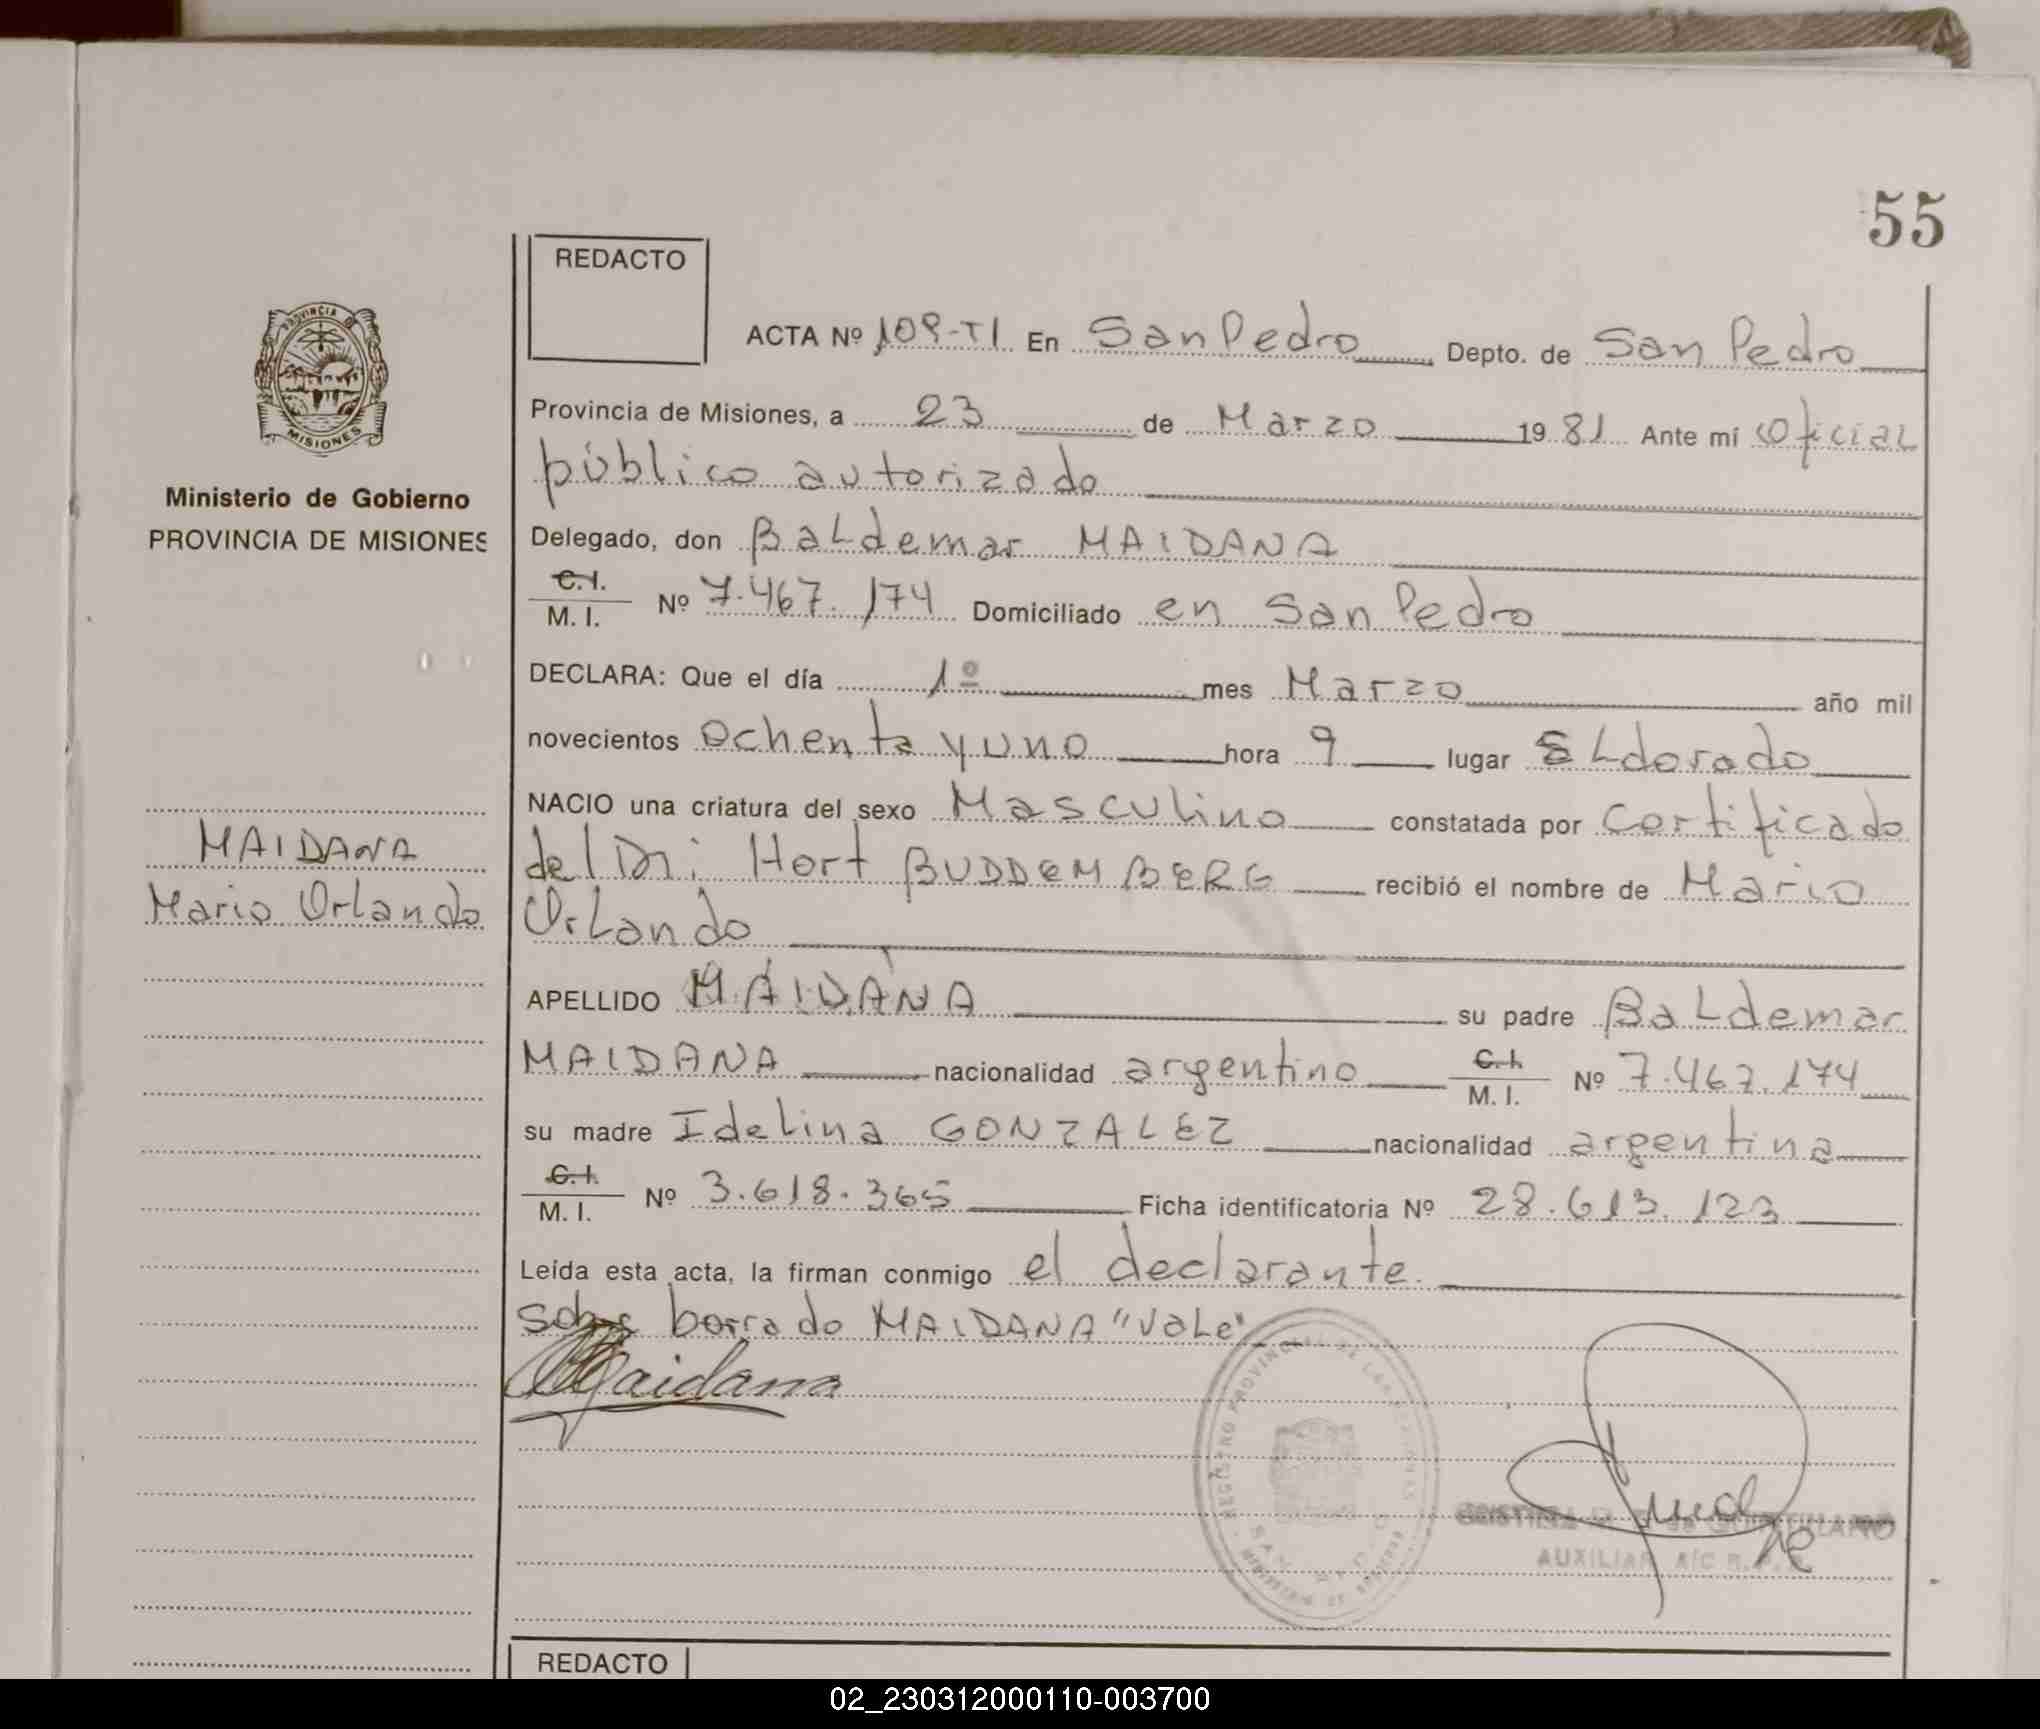 55
REDACTO
ACTA Nº 109-T1 En San Pedro Depto. de San Pedro
Provincia de Misiones, a 23 de Marzo 1981 Ante mí Oficial
público autorizado
Delegado, don BaLdemar MAIDANA
C.I. M.I. Nº 7.467.174 Domiciliado en San Pedro
DECLARA: Que el día 1º mes Marzo año mil
novecientos ochenta y uno hora 9 lugar ELdorado
NACIO una criatura del sexo Masculino constatada por certificado
del Dr: Hort BUDDEMBERG recibió el nombre de Mario
OrLando
APELLIDO MAIDANA su padre BaLdemar
MAIDANA nacionalidad argentino C.I. M.I. Nº 7.467.174
su madre IdeLina GONZALEZ nacionalidad argentina
C.I. M.I. Nº 3.618.365 Ficha identificatoria Nº 28.613.123
Leída esta acta, la firman conmigo el declarante.
sobre borrado MAIDANA "VaLe"
Maidana
AUXILIAR A/C R.P.P.
PROVINCIA DE
MISIONES
Ministerio de Gobierno
PROVINCIA DE MISIONES
MAIDANA
Mario OrLando
REGISTRO PROVINCIAL DE LAS PERSONAS
REDACTO
02_230312000110-003700